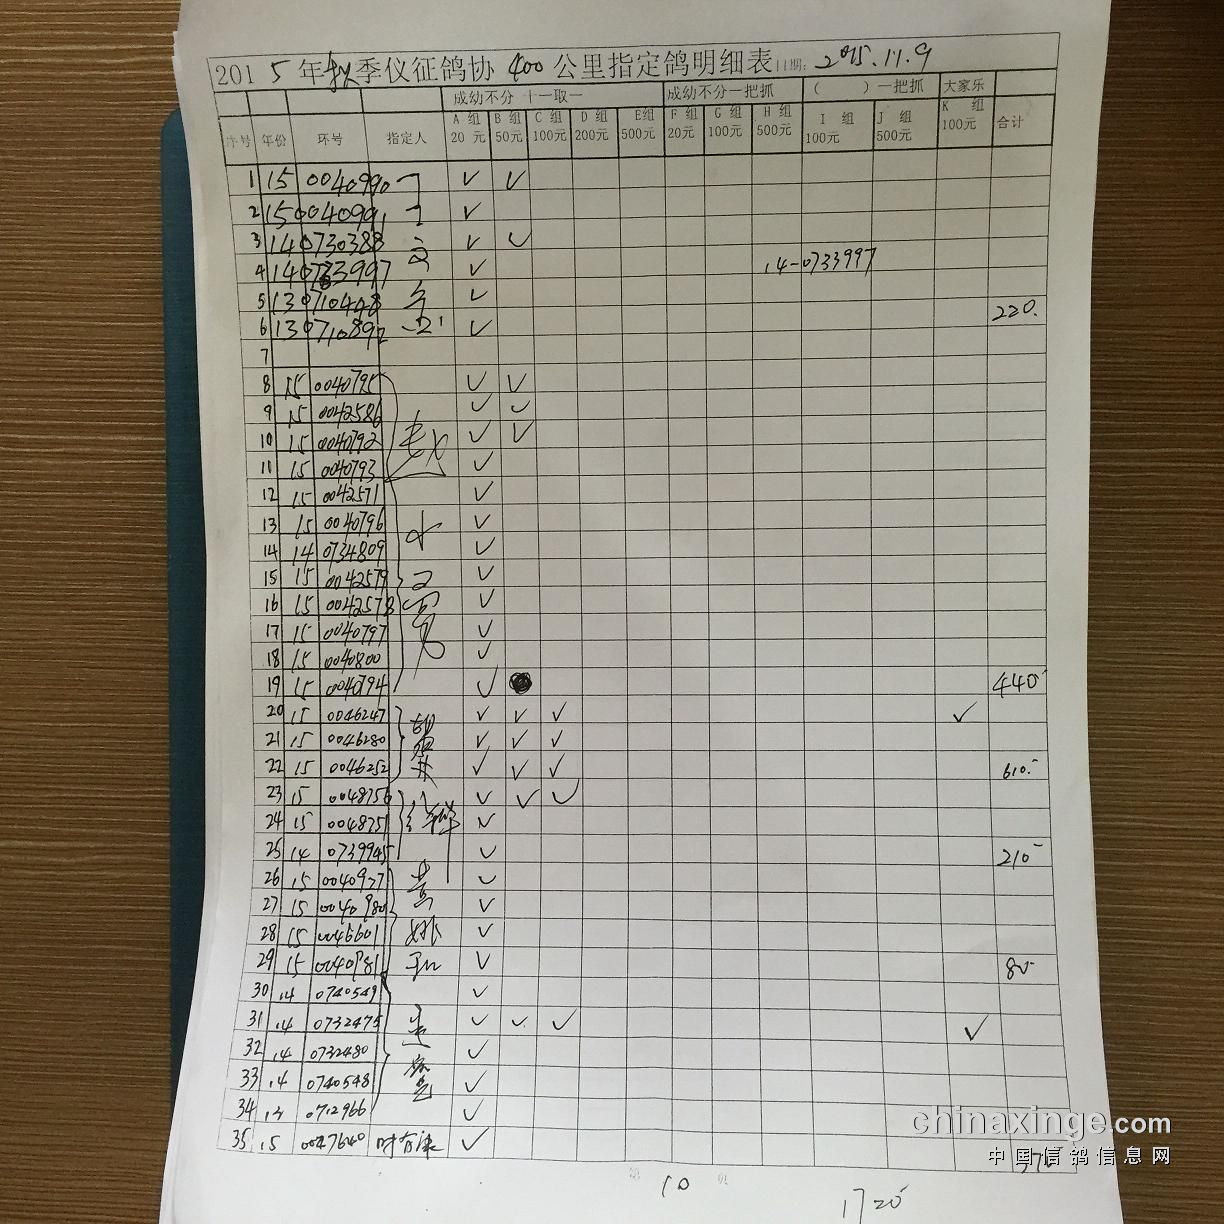 2015年秋季仪征鸽协400公里指定鸽明细表日期: 2015.11.9
成幼不分 十一取一 成幼不分一把抓 ( )一把抓 大家乐
序号 年份 环号 指定人 A组20元 B组50元 C组100元 D组200元 E组500元 F组20元 G组100元 H组500元 I组100元 J组500元 K组100元 合计
1 15 0040990 ✓ ✓
2 15 0040991 ✓
3 14 0730388 ✓ ✓
4 14 0733997 ✓ 14-0733997
5 13 0710448 ✓ 220.
6 13 0710892 ✓
7
8 15 0040795 ✓ ✓
9 15 0042586 ✓ ✓
10 15 0040792 ✓ ✓
11 15 0040793 ✓
12 15 0042571 ✓
13 15 0040796 ✓
14 14 0734809 ✓
15 15 0042579 ✓
16 15 0042578 ✓
17 15 0040797 ✓
18 15 0040800 ✓
19 15 0040794 ✓ 440
20 15 0046247 ✓ ✓ ✓ ✓
21 15 0046280 ✓ ✓ ✓
22 15 0046252 ✓ ✓ ✓ 610.
23 15 0048756 ✓ ✓ ✓
24 15 0048751 ✓
25 14 0739945 ✓ 210
26 15 0040977 黄 ✓
27 15 0040980 ✓
28 15 0046601 ✓
29 15 0040981 ✓ 80
30 14 0740549 ✓
31 14 0732475 ✓ ✓ ✓ ✓
32 14 0732480 ✓
33 14 0740548 ✓
34 13 0712966 ✓
35 15 0047640 时有 ✓ 370
第 10 班
1720
chinaxinge.com
中国信鸽信息网